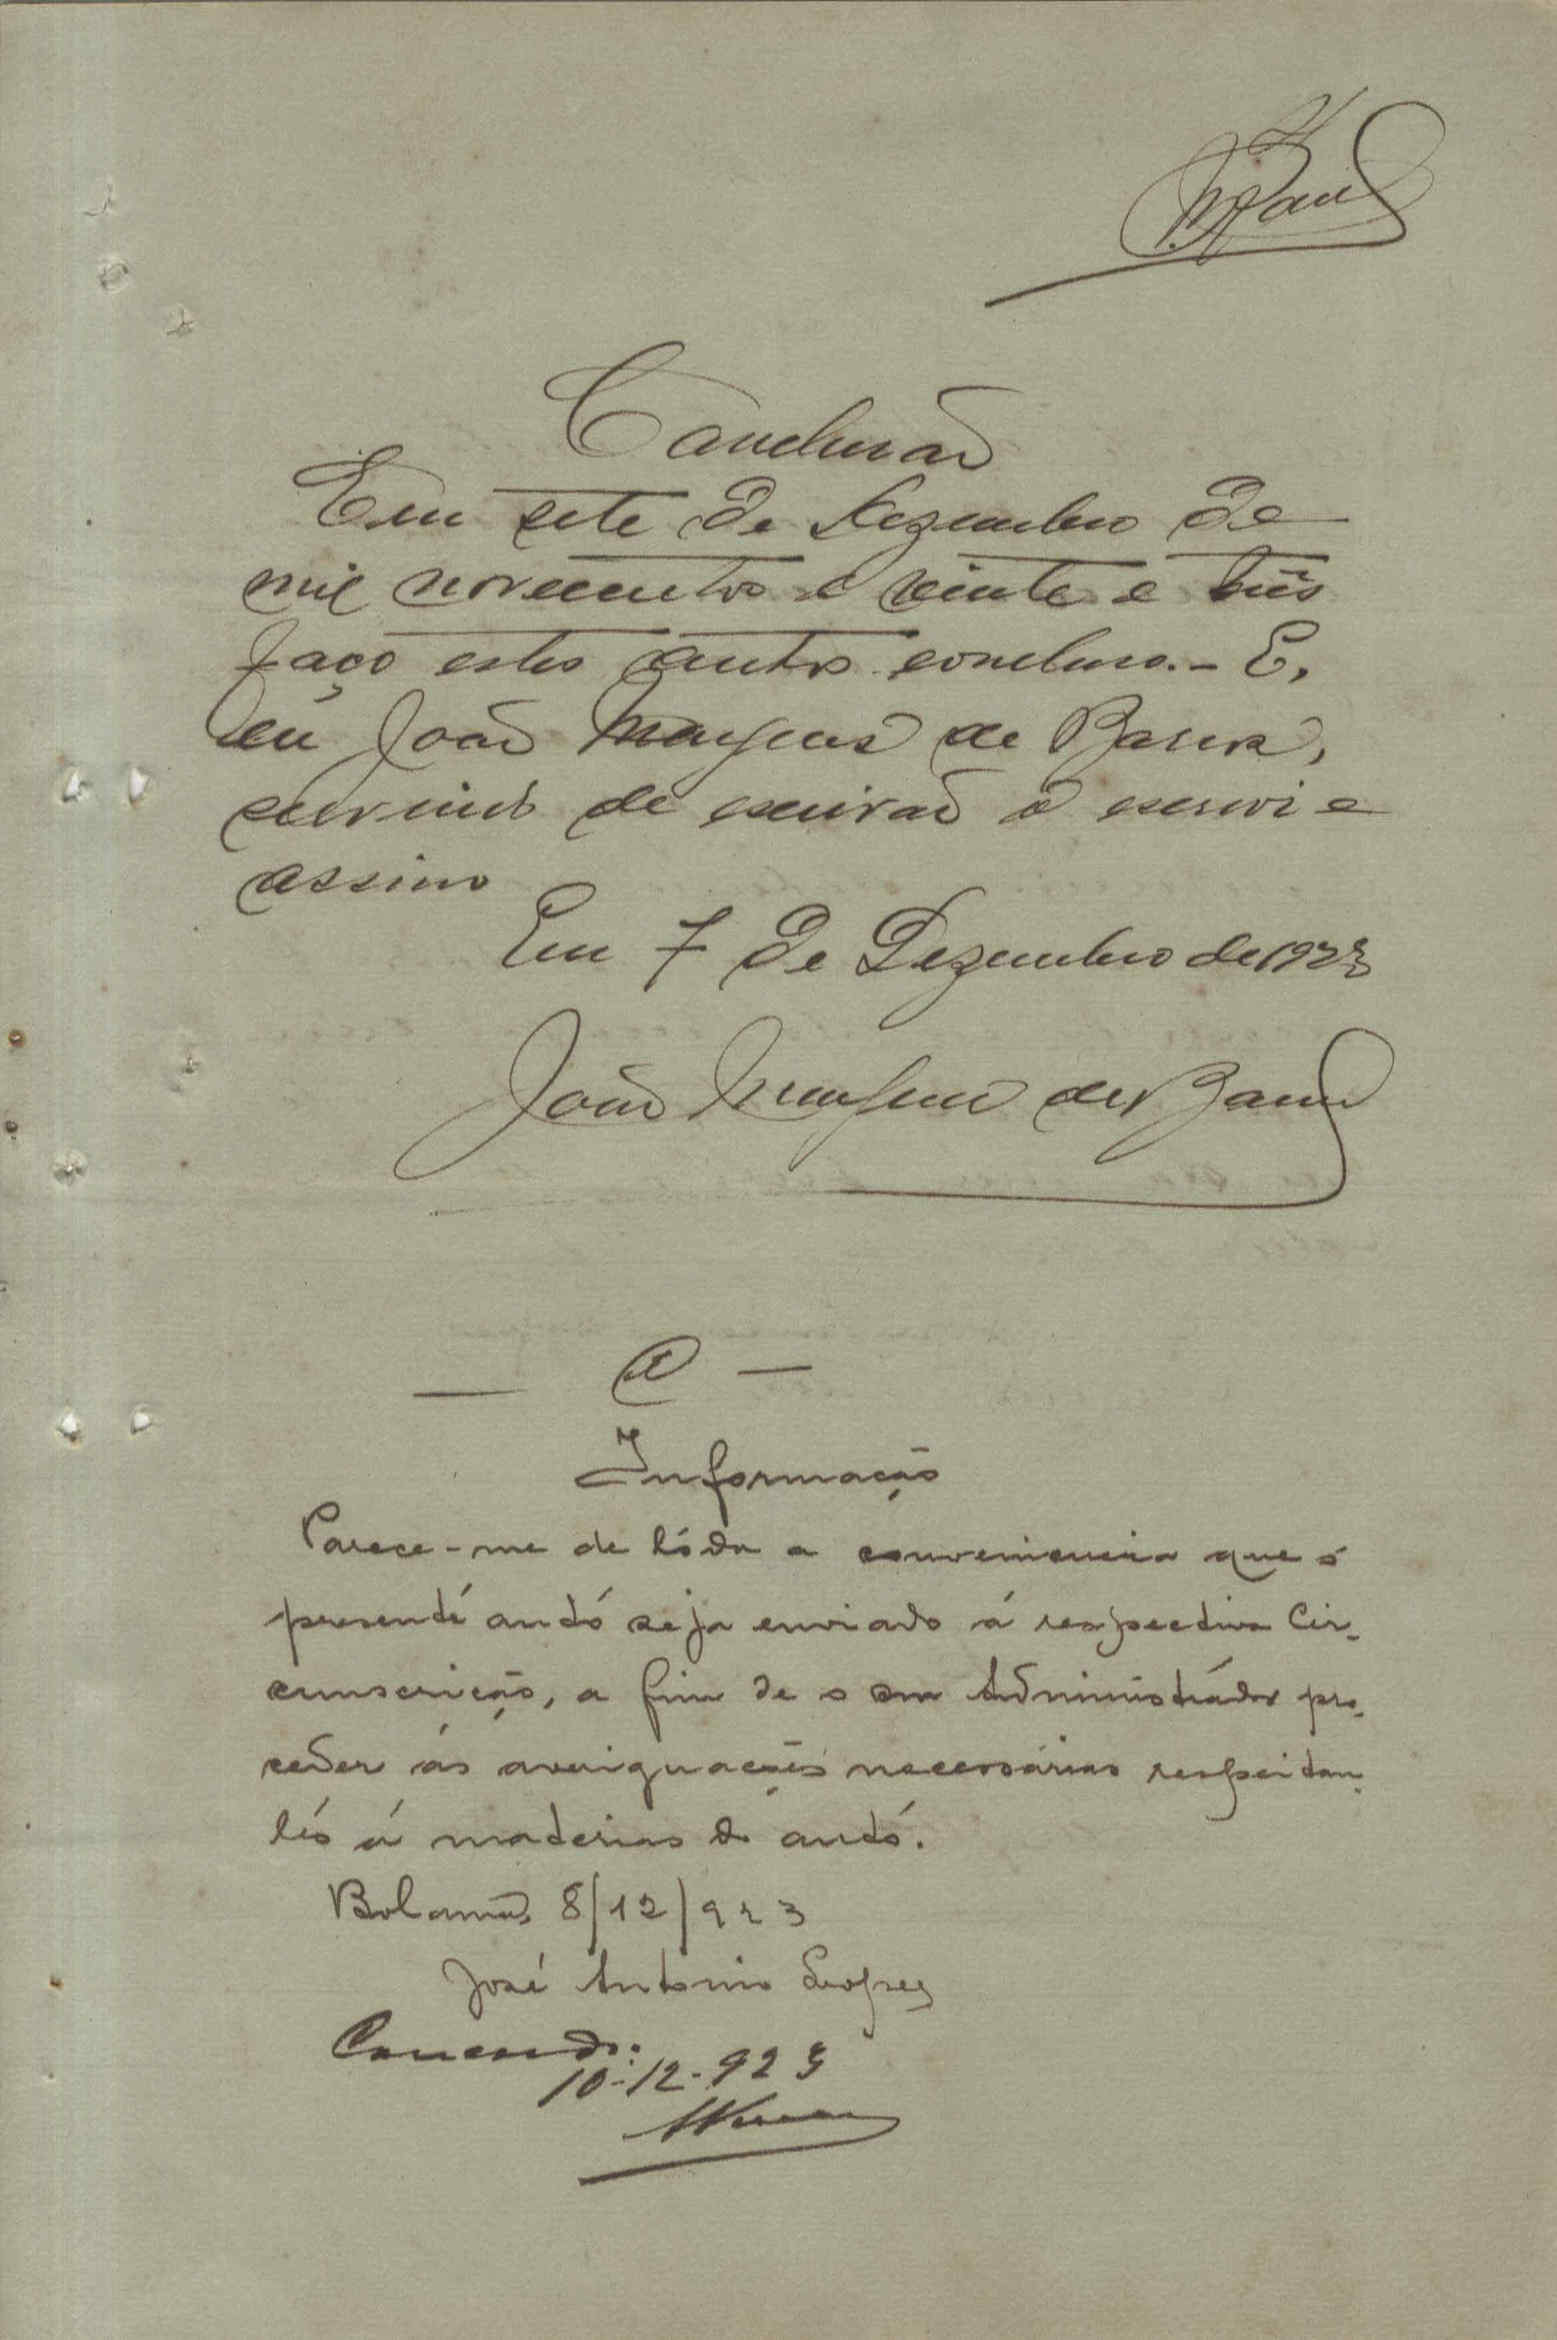 Conclusão
Em sete de Dezembro de
mil novecentos e vinte e três
faço estes autos conclusos.- E,
eu João de Barros,
servindo de escrivão o escrevi e
assino
Em 7 de Dezembro de 1923
João de Barros
Informação
Parece-me de tóda a conveniencia que o
presente autó seja enviado á respectiva Cir-
cunscrição, a fim de o Administrádor pro-
ceder ás averiguações necessárias respeitan-
tés á materias do autó.
Bolama, 8/12/923
José Antonio Lopes
Concordo.
10-12-923